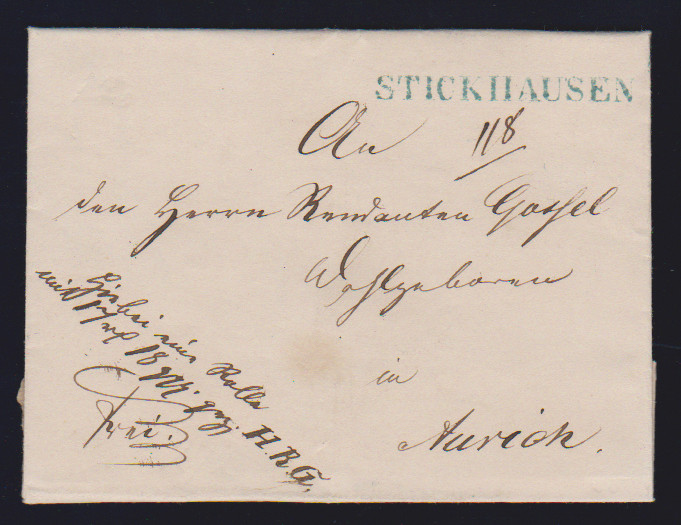 STICKHAUSEN
An 118
den Herrn Rendanten Gossel
Wohlgeboren
in
Aurich.
Hiebei eine Rolle
mit 18 gez. H.R.G.
frei.